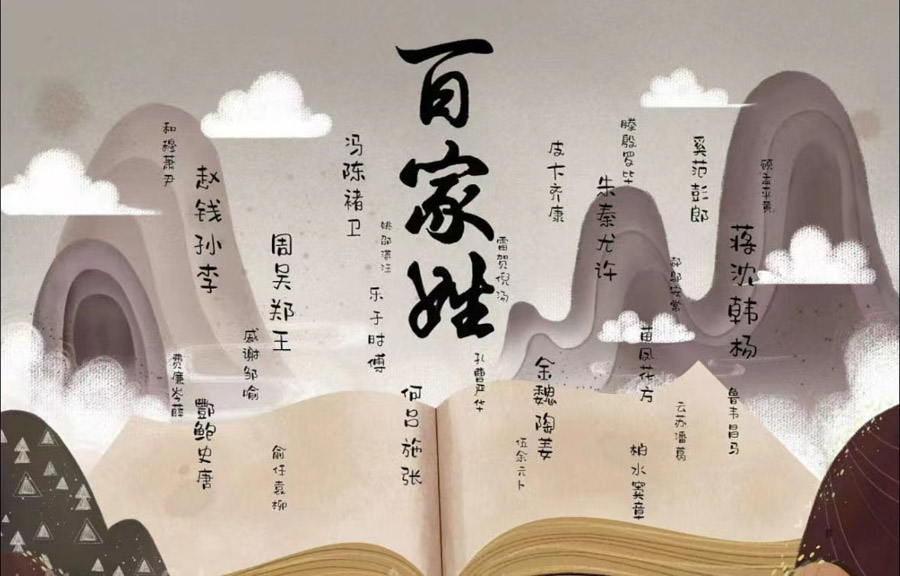 百家姓
和穆萧尹
赵钱孙李
周吴郑王
冯陈褚卫
乐于时傅
姚邵湛汪
戚谢邹喻
费廉岑薛
酆鲍史唐
俞任袁柳
何吕施张
雷贺倪汤
孔曹严华
金魏陶姜
伍余元卜
皮卞齐康
滕殷罗毕
朱秦尤许
奚范彭郎
顾孟平黄
蒋沈韩杨
郝邬安常
苗凤花方
云苏潘葛
鲁韦昌马
柏水窦章